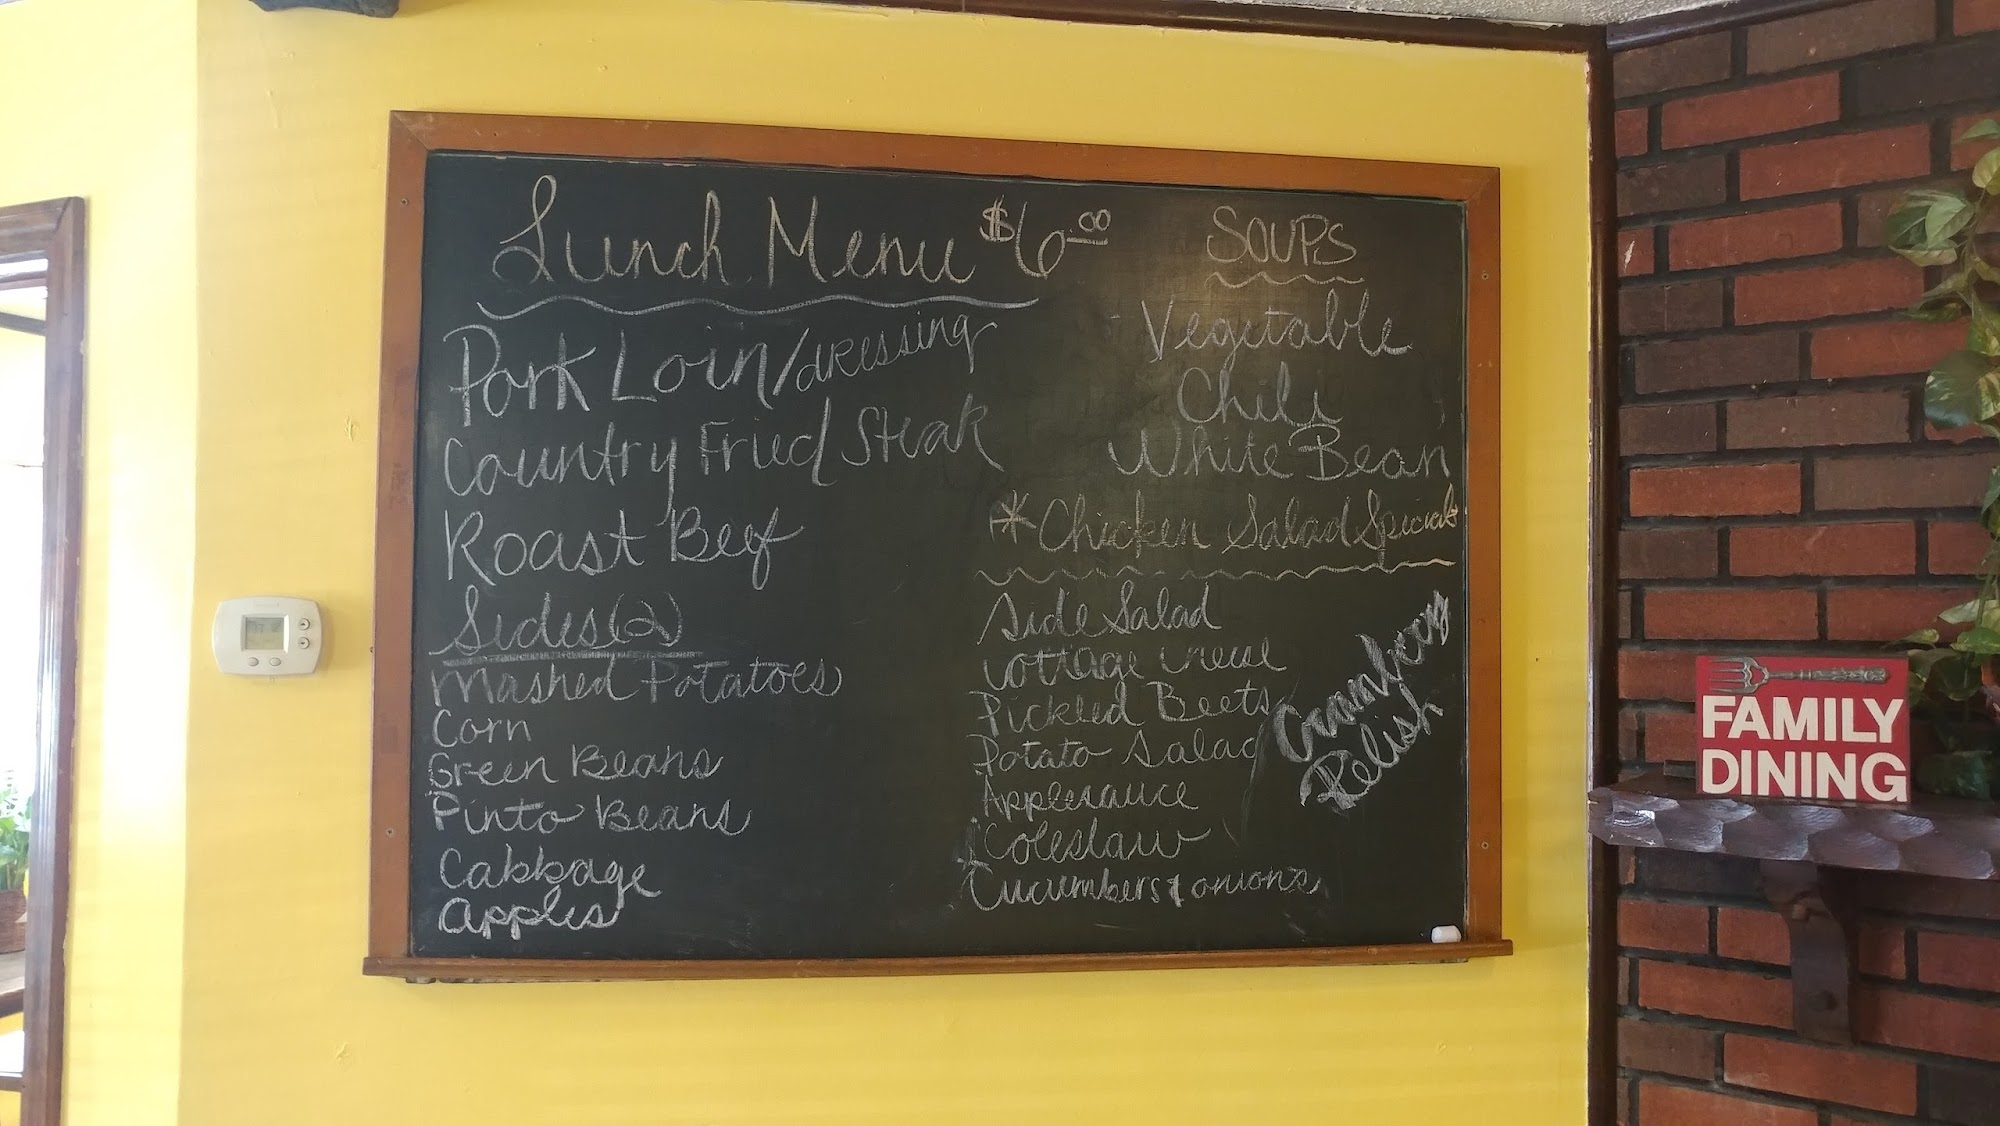 Lunch Menu $6.00
Pork Loin/dressing
Country Fried Steak
Roast Beef
Sides (2)
Mashed Potatoes
Corn
Green Beans
Pinto Beans
Cabbage
Apples
SOUPS
Vegetable
Chili
White Bean
*Chicken Salad Special
Side Salad
Cottage Cheese
Pickled Beets
Potato Salad
Applesauce
Coleslaw
Cucumbers & onions
Cranberry
Relish
FAMILY
DINING